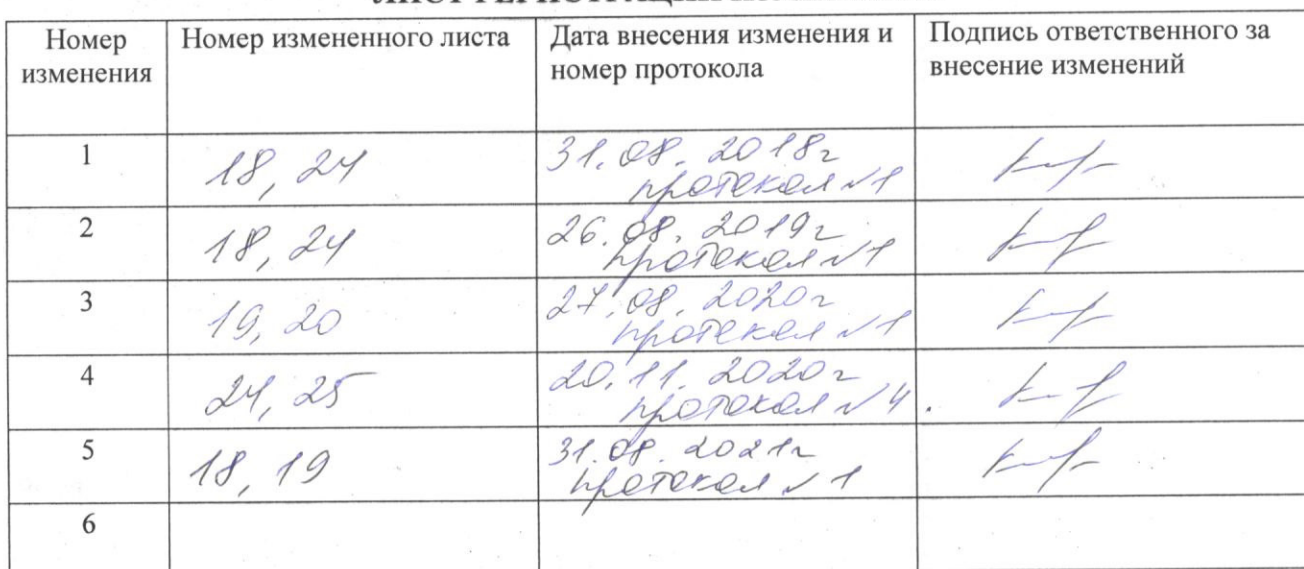 ЛИСТ РЕГИСТРАЦИИ
Номер изменения
Номер измененного листа
Дата внесения изменения и номер протокола
Подпись ответственного за внесение изменений
1
18, 24
31.08.2018г
протокол №1
2
18, 24
26.08.2019г
протокол №1
3
19, 20
27.08.2020г
протокол №1
4
24, 25
20.11.2020г
протокол №4.
5
18, 19
31.08.2021г
протокол №1
6